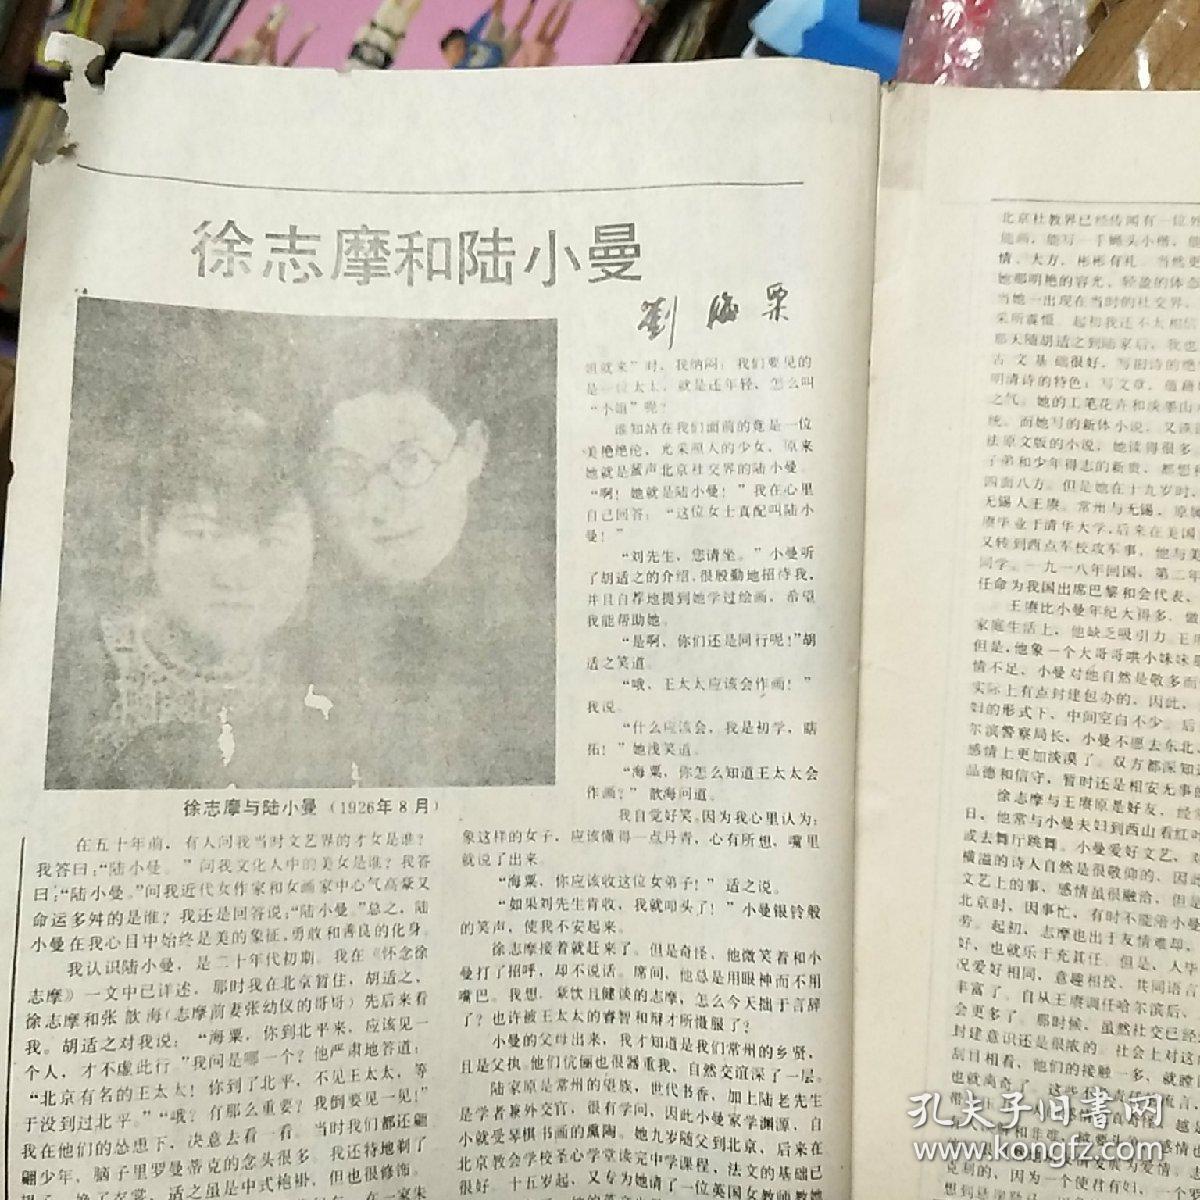 徐志摩和陆小曼
劉海粟
徐志摩与陆小曼（1926年8月）
在五十年前，有人问我当时文艺界的才女是谁？
我答曰：“陆小曼。”问我文化人中的美女是谁？我答
曰：“陆小曼。”问我近代女作家和女画家中心气高豪又
命运多舛的是谁？我还是回答说：“陆小曼。”总之，陆
小曼在我心目中始终是美的象征，勇敢和善良的化身。
我认识陆小曼，是二十年代初期。我在《怀念徐
志摩》一文中已详述，那时我在北京暂住，胡适之、
徐志摩和张歆海（志摩前妻张幼仪的哥哥）先后来看
我。胡适之对我说：“海粟，你到北平来，应该见一
个人，才不虚此行。”我问是哪一个？他严肃地答道：
“北京有名的王太太！你到了北平，不见王太太，等
于没到过北平。”“哦？有那么重要？我倒要见一见！”
我在他们的怂恿下，决意去看一看。当时我们都还翩
翩少年，脑子里罗曼蒂克的念头很多。我还特地剃了
适之虽是中式袍褂，但也很修饰。
姐就来”时，我纳闷：我们要见的
是一位太太，就是还年轻，怎么叫
“小姐”呢？
谁知站在我们面前的竟是一位
美艳绝伦、光采照人的少女，原来
她就是蜚声北京社交界的陆小曼。
“啊！她就是陆小曼！”我在心里
自己回答：“这位女士真配叫陆小
曼！”
“刘先生，您请坐。”小曼听
了胡适之的介绍，很殷勤地招待我，
并且自荐地提到她学过绘画，希望
我能帮助她。
“是啊，你们还是同行呢！”胡
适之笑道。
“哦，王太太应该会作画！”
我说。
“什么应该会，我是初学，瞎
拓！”她浅笑道。
“海粟，你怎么知道王太太会
作画？”歆海问道。
我自觉好笑。因为我心里认为：
象这样的女子，应该懂得一点丹青，心有所想，嘴里
就说了出来。
“海粟，你应该收这位女弟子！”适之说。
“如果刘先生肯收，我就叩头了！”小曼银铃般
的笑声，使我不安起来。
徐志摩接着就赶来了。但是奇怪，他微笑着和小
曼打了招呼，却不说话。席间，他总是用眼神而不用
嘴巴。我想，豪饮且健谈的志摩，怎么今天拙于言辞
了？也许被王太太的睿智和辩才所慑服了？
小曼的父母出来，我才知道是我们常州的乡贤，
且是父执。他们伉俪也很器重我，自然交谊深了一层。
陆家原是常州的望族，世代书香，加上陆老先生
是学者兼外交官，很有学问，因此小曼家学渊源，自
小就受琴棋书画的熏陶。她九岁随父到北京，后来在
北京教会学校圣心学堂读完中学课程，法文的基础已
很好。十五岁起，又专为她请了一位英国女教师教她
北京社教界已经传闻有一位外
能画，能写一手蝇头小楷，能
情、大方、彬彬有礼。当然更
她那明艳的容光、轻盈的体态
当她一出现在当时的社交界，
采所震慑。起初我还不太相信
那天随胡适之到陆家后，我也
古文基础很好，写旧诗的绝
明清诗的特色；写文章，蕴藉
之气。她的工笔花卉和淡墨山
统。而她写的新体小说，又
法原文版的小说，她读得很多。
子弟和少年得志的新贵，都想
四面八方。但是她在十九岁时，
无锡人王赓。常州与无锡，原属
赓毕业于清华大学，后来在美国
又转到西点军校攻军事，他与美
同学。一九一八年回国，第二年
任命为我国出席巴黎和会代表、
王赓比小曼年纪大得多，做
家庭生活上，他缺乏吸引力。王
但是，他象一个大哥哥哄小妹妹
情不足，小曼对他自然是敬多而
实际上有点封建包办的，因此，
妇的形式下，中间空白不少。后
尔滨警察局长，小曼不愿去东北、
感情上更加淡漠了。双方都深知
品德和信守，暂时还是相安无事的
徐志摩与王赓原是好友，经常
日，他常与小曼夫妇到西山看红叶
或去舞厅跳舞。小曼爱好文艺，对
横溢的诗人自然是很敬仰的，因此
文艺上的事，感情虽很融洽，但是
北京时，因事忙，有时不能陪小曼
劳。起初，志摩也出于友情难却，
好，也就乐于充其任。但是，人毕
况爱好相同，意趣相投，共同语言
丰富了。自从王赓调任哈尔滨后，
会更多了。那时候，虽然社交已经
封建意识还是很浓的。社会上对这
刮目相看，他们的接触一多，就
也就离奇了。
克刻的，因为一个使君有妇，一
孔夫子旧书网
www.kongfz.com